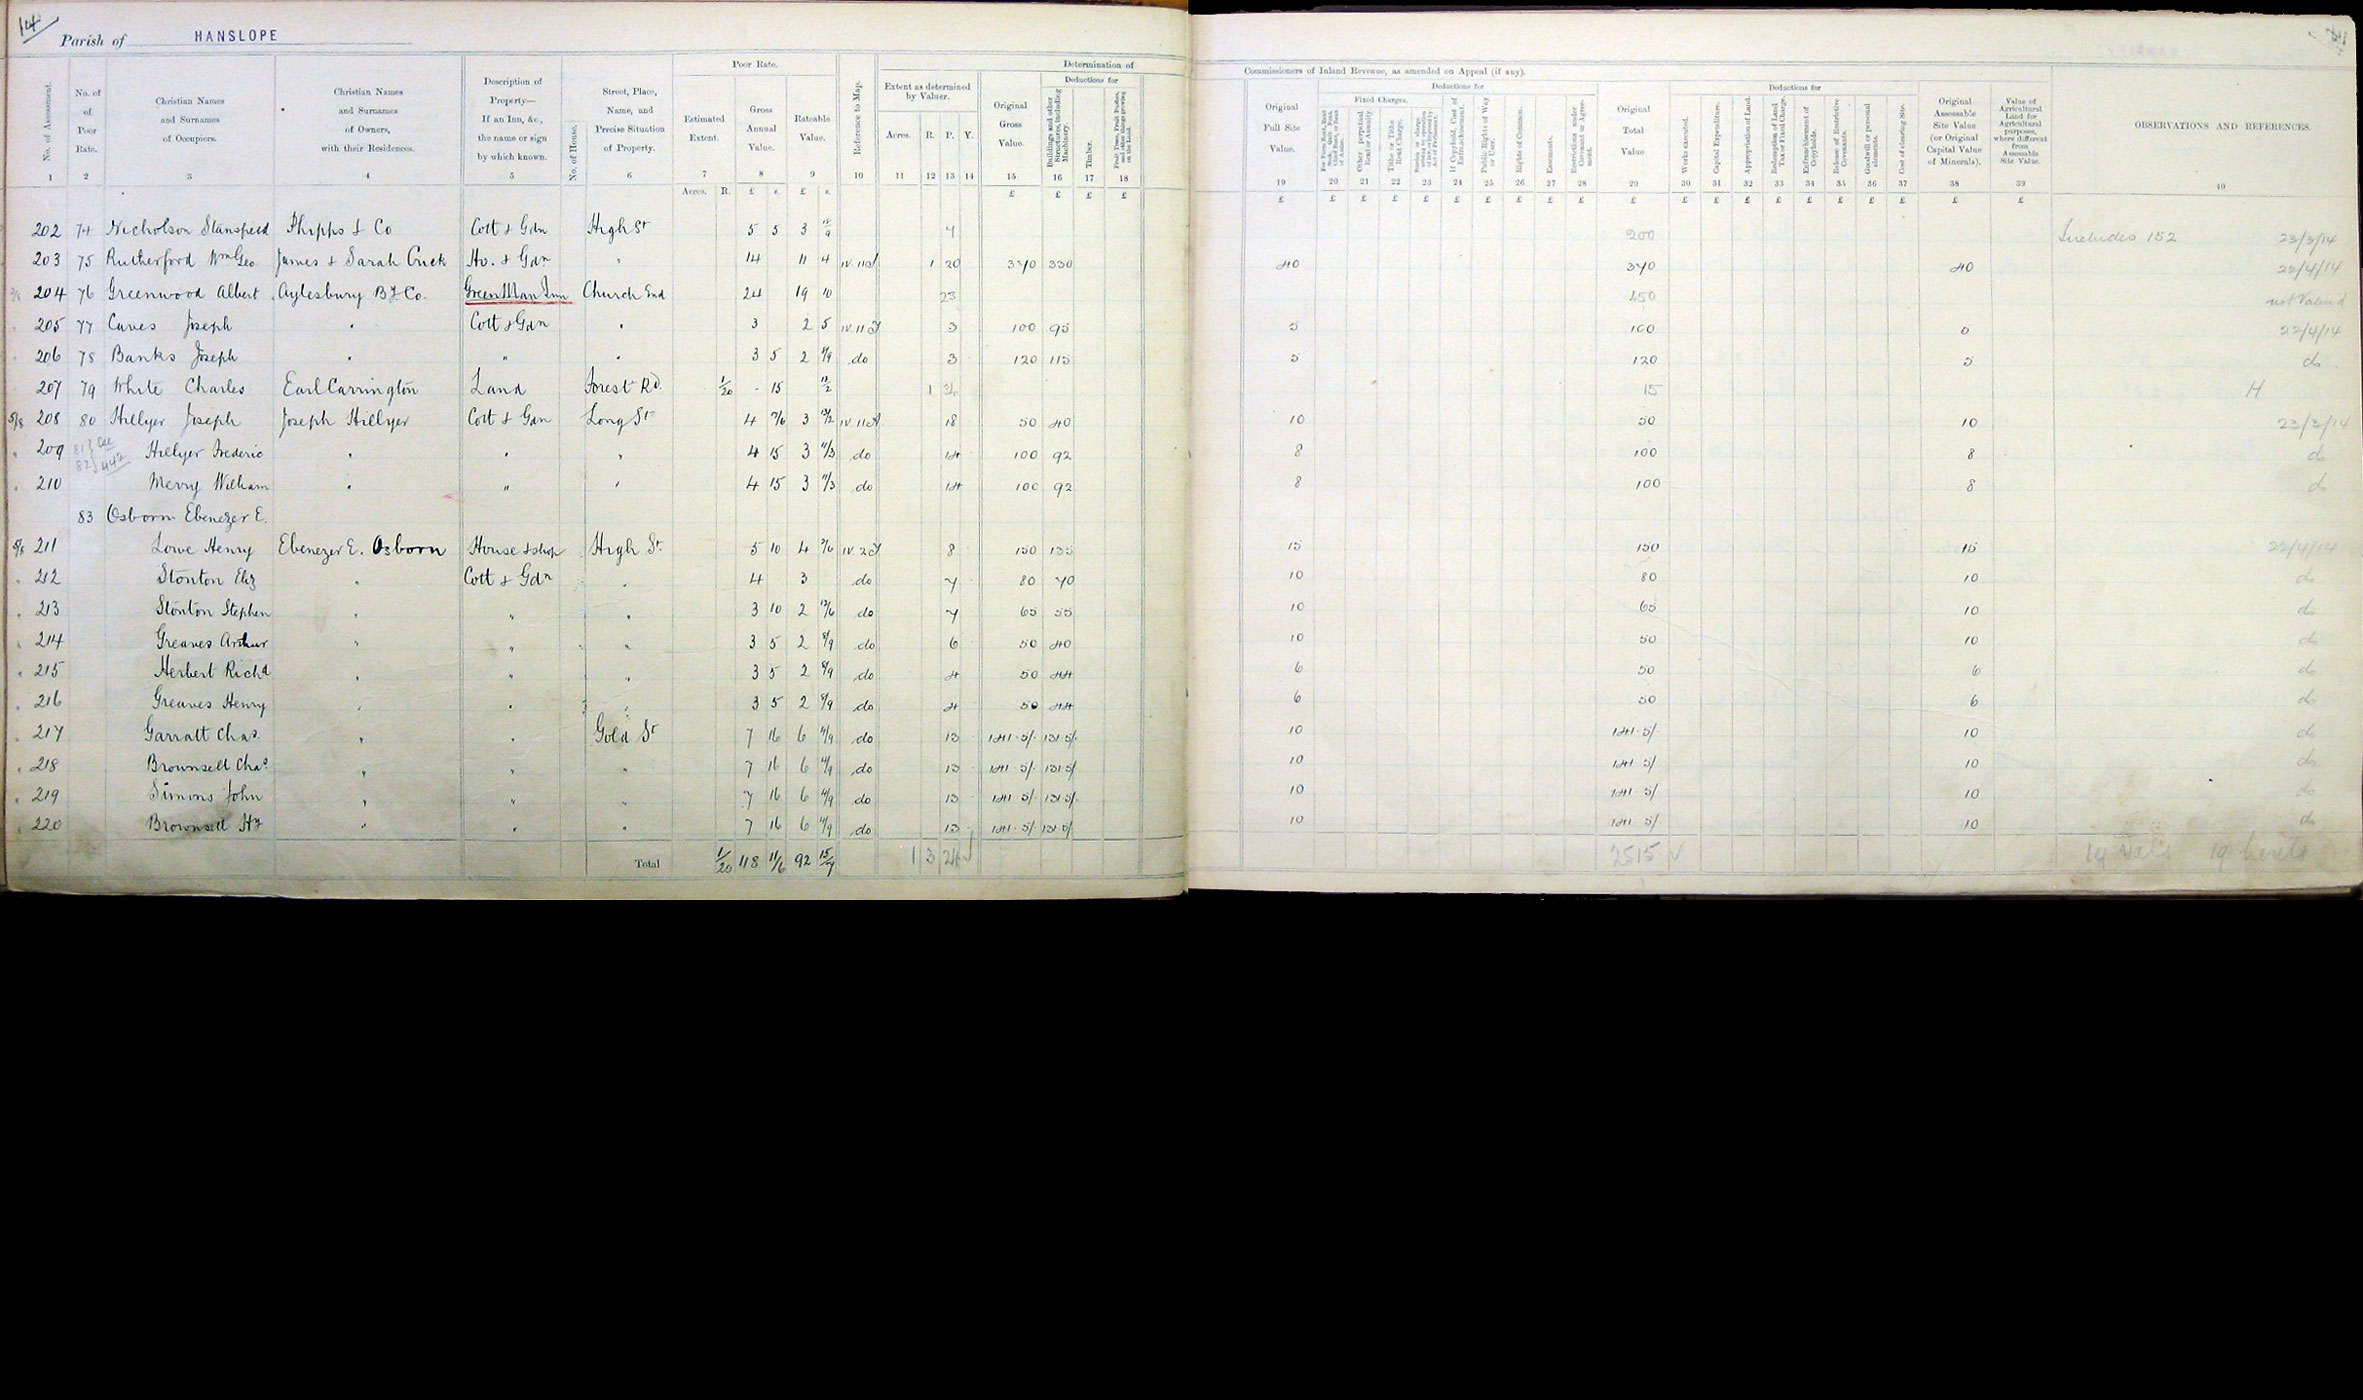 14
Parish of HANSLOPE
Poor Rate.
Determination of
Commissioners of Inland Revenue, as amended on Appeal (if any).
No. of Assessment.
No. of Poor Rate.
Christian Names and Surnames of Occupiers.
Christian Names and Surnames of Owners, with their Residences.
Description of Property—If an Inn, &c., the name or sign by which known.
No. of House.
Street, Place, Name, and Precise Situation of Property.
Estimated Extent.
Gross Annual Value.
Rateable Value.
Reference to Map.
Extent as determined by Valuer.
Acres. R. P. Y.
Original Gross Value.
Deductions for
Buildings and other Structures, including Machinery.
Timber.
Fruit Trees, Fruit Bushes, and other things growing on the Land.
Original Full Site Value.
Deductions for
Fixed Charges.
Other perpetual Rent or Annuity.
Tithe or Tithe Rent Charge.
If Copyhold, Cost of Enfranchisement.
Public Rights of Way or User.
Rights of Common.
Easements.
Restrictions under Covenant or Agreement.
Original Total Value
Deductions for
Works executed.
Capital Expenditure.
Appropriation of Land.
Redemption of Land Tax or Fixed Charge.
Enfranchisement of Copyholds.
Release of Restrictive Covenants.
Goodwill or personal elements.
Cost of clearing Site.
Original Assessable Site Value (or Original Capital Value of Minerals).
Value of Agricultural Land for Agricultural purposes, where different from Assessable Site Value.
OBSERVATIONS AND REFERENCES.
1 2 3 4 5 6 7 8 9 10 11 12 13 14 15 16 17 18 19 20 21 22 23 24 25 26 27 28 29 30 31 32 33 34 35 36 37 38 39 40
Acres. R. £ s. £ s. £ £ £ £ £ £ £ £ £ £ £ £ £ £ £ £ £ £ £ £ £ £ £ £ £
202 74 Nicholson Stansfield Phipps & Co Cott & Gdn High St 5 5 3 200 Includes 152 23/3/14
203 75 Rutherford Wm Geo James & Sarah Cuck Ho. & Gdn " 14 11 4 1 20 370 330 40 370 40 22/4/14
204 76 Greenwood Albert Aylesbury By Co. Green Man Inn Church End 24 19 10 23 450 not Valued
205 77 Caves Joseph " Cott & Gdn " 3 2 5 3 100 95 5 100 22/4/14
206 78 Banks Joseph " " " 3 5 2 8/9 do 3 120 115 5 120 5 do
207 79 White Charles Earl Carrington Land Forest Rd 1/20 - 15 1 15 H
5/8 208 80 Hillyer Joseph Joseph Hillyer Cott & Gdn Long St 4 7/6 3 18 50 40 10 50 10 23/3/14
" 209 81 82 see 442 Hillyer Frederic " " " 4 15 3 11/3 do 14 100 92 8 100 8 do
" 210 Merry William " " " 4 15 3 11/3 do 14 100 92 8 100 8 do
83 Osborn Ebenezer E.
211 Lowe Henry Ebenezer E. Osborn House & shop High St. 5 10 4 2/6 8 150 135 15 150 15 22/4/14
" 212 Stonton Eliz " Cott & Gdn " 4 3 do 7 80 70 10 80 10 do
" 213 Stonton Stephen " " " 3 10 2 12/6 do 7 65 55 10 65 10 do
" 214 Greaves Arthur " " " 3 5 2 8/9 do 6 50 40 10 50 10 do
" 215 Herbert Richd " " " 3 5 2 8/9 do 4 50 44 6 50 6 do
" 216 Greaves Henry " " " 3 5 2 8/9 do 4 50 44 6 50 6 do
" 217 Garratt Chas. " " Gold St 7 16 6 4/9 do 13 141-5/- 131-5/- 10 141-5/- 10 do
" 218 Brownsell Chas " " " 7 16 6 4/9 do 13 141-5/- 131-5/ 10 141-5/ 10 do
" 219 Simons John " " " 7 16 6 4/9 do 13 141-5/ 131-5/- 10 141-5/ 10 do
" 220 Brownsell Hy " " " 7 16 6 4/9 do 13 141-5/ 131-5/ 10 141-5/ 10 do
Total 1/20 118 11/6 92 1 3 24 2515 19 Val's 19 heredts